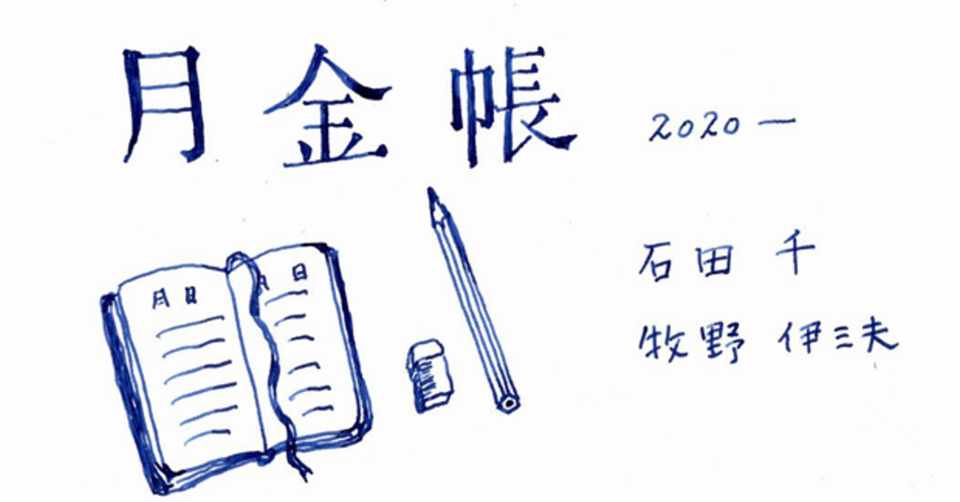 月金帳
2020―
石田 千
牧野 伊三夫
月 日
月 日